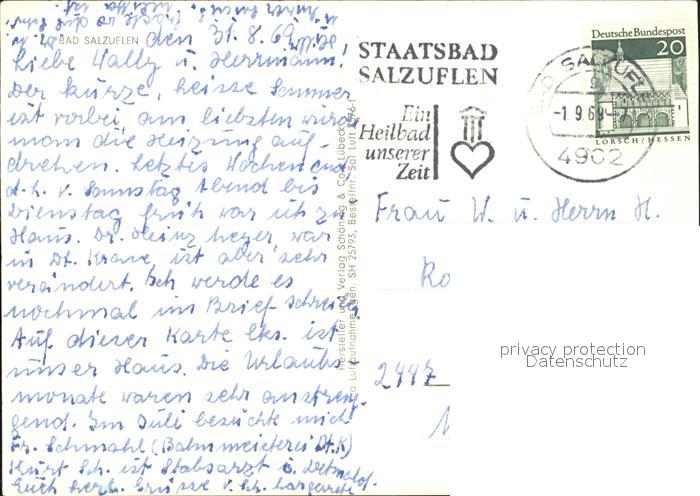 BAD SALZUFLEN den 31.8.69
Liebe Wally u. Herrmann!
Der kurze, heisse Sommer
ist vorbei, am liebsten würde
man die Heizung auf-
drehen. Letztes Wochenend
d.h. v. Samstag Abend bis
Dienstag früh war ich zu
Haus. Dr. Heinz Meyer, war
in Dt. Krone, ist aber sehr
verändert. Ich werde es
nochmal im Brief schreiben
Auf dieser Karte lks. ist
unser Haus. Die Urlaubs
monate waren sehr anstren-
gend. Im Juli besuchte mich
Fr. Schmahl (Bahnmeisterei Dt.K)
Kurt Sch. ist Stabsarzt i. Detmold.
Euch herzl. Grüsse v. Ihr. Margarete
Hersteller und Verlag Schöning & Co., Lübeck
Luftaufnahme SH 25793, Bestellnr. Sal Luft
STAATSBAD
SALZUFLEN
Ein
Heilbad
unserer
Zeit
BAD SALZUFL
-1.9.69
4902
Deutsche Bundespost
20
LORSCH/HESSEN
Frau W. u. Herrn H.
Ro
2447
privacy protection
Datenschutz